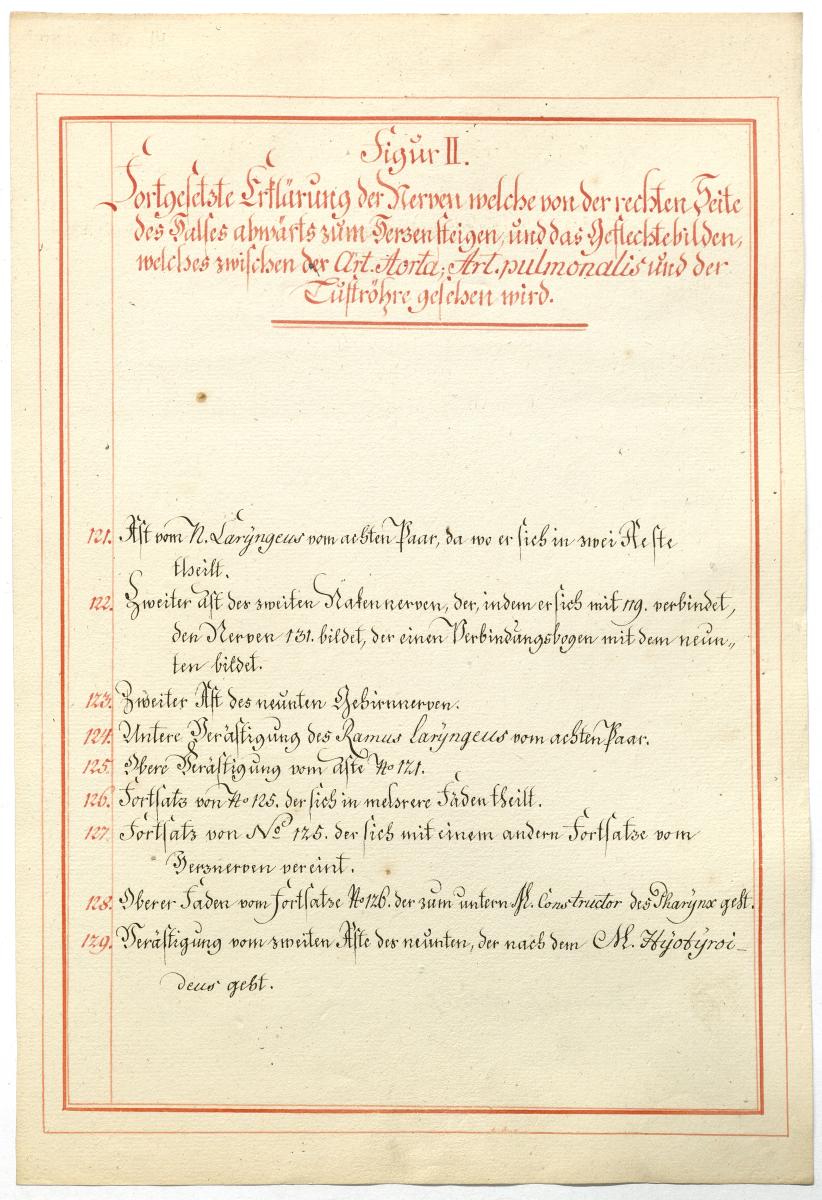 Figur II.
Fortgesetzte Erklärung der Nerven welche von der rechten Seite
des Halses abwärts zum Herzen steigen, und das Geflechte bilden,
welches zwischen der Art. Aorta, Art. pulmonalis und der
Luftröhre gesehen wird.
121. Ast vom N. Larÿngeus vom achten Paar, da wo er sich in zwei Aeste
theilt.
122. Zweiter Ast des zweiten Nakennerven, der, indem er sich mit 119. verbindet,
den Nerven 131. bildet, der einen Verbindungsbogen mit dem neun„
ten bildet.
123. Zweiter Ast des neunten Gehirnnerven.
124. Untere Verästigung des Ramus Larÿngeus vom achten Paar.
125. Obere Verästigung vom Aste No 121.
126. Fortsatz von No 125. der sich in mehrere Fäden theilt.
127. Fortsatz von No 125. der sich mit einem andern Fortsatze vom
Herznerven vereint.
128. Oberer Faden vom Fortsatze No 126. der zum untern M. Constructor des Pharÿnx geht.
129. Verästigung vom zweiten Aste des neunten, der nach dem M. Hÿotÿroi-
deus geht.